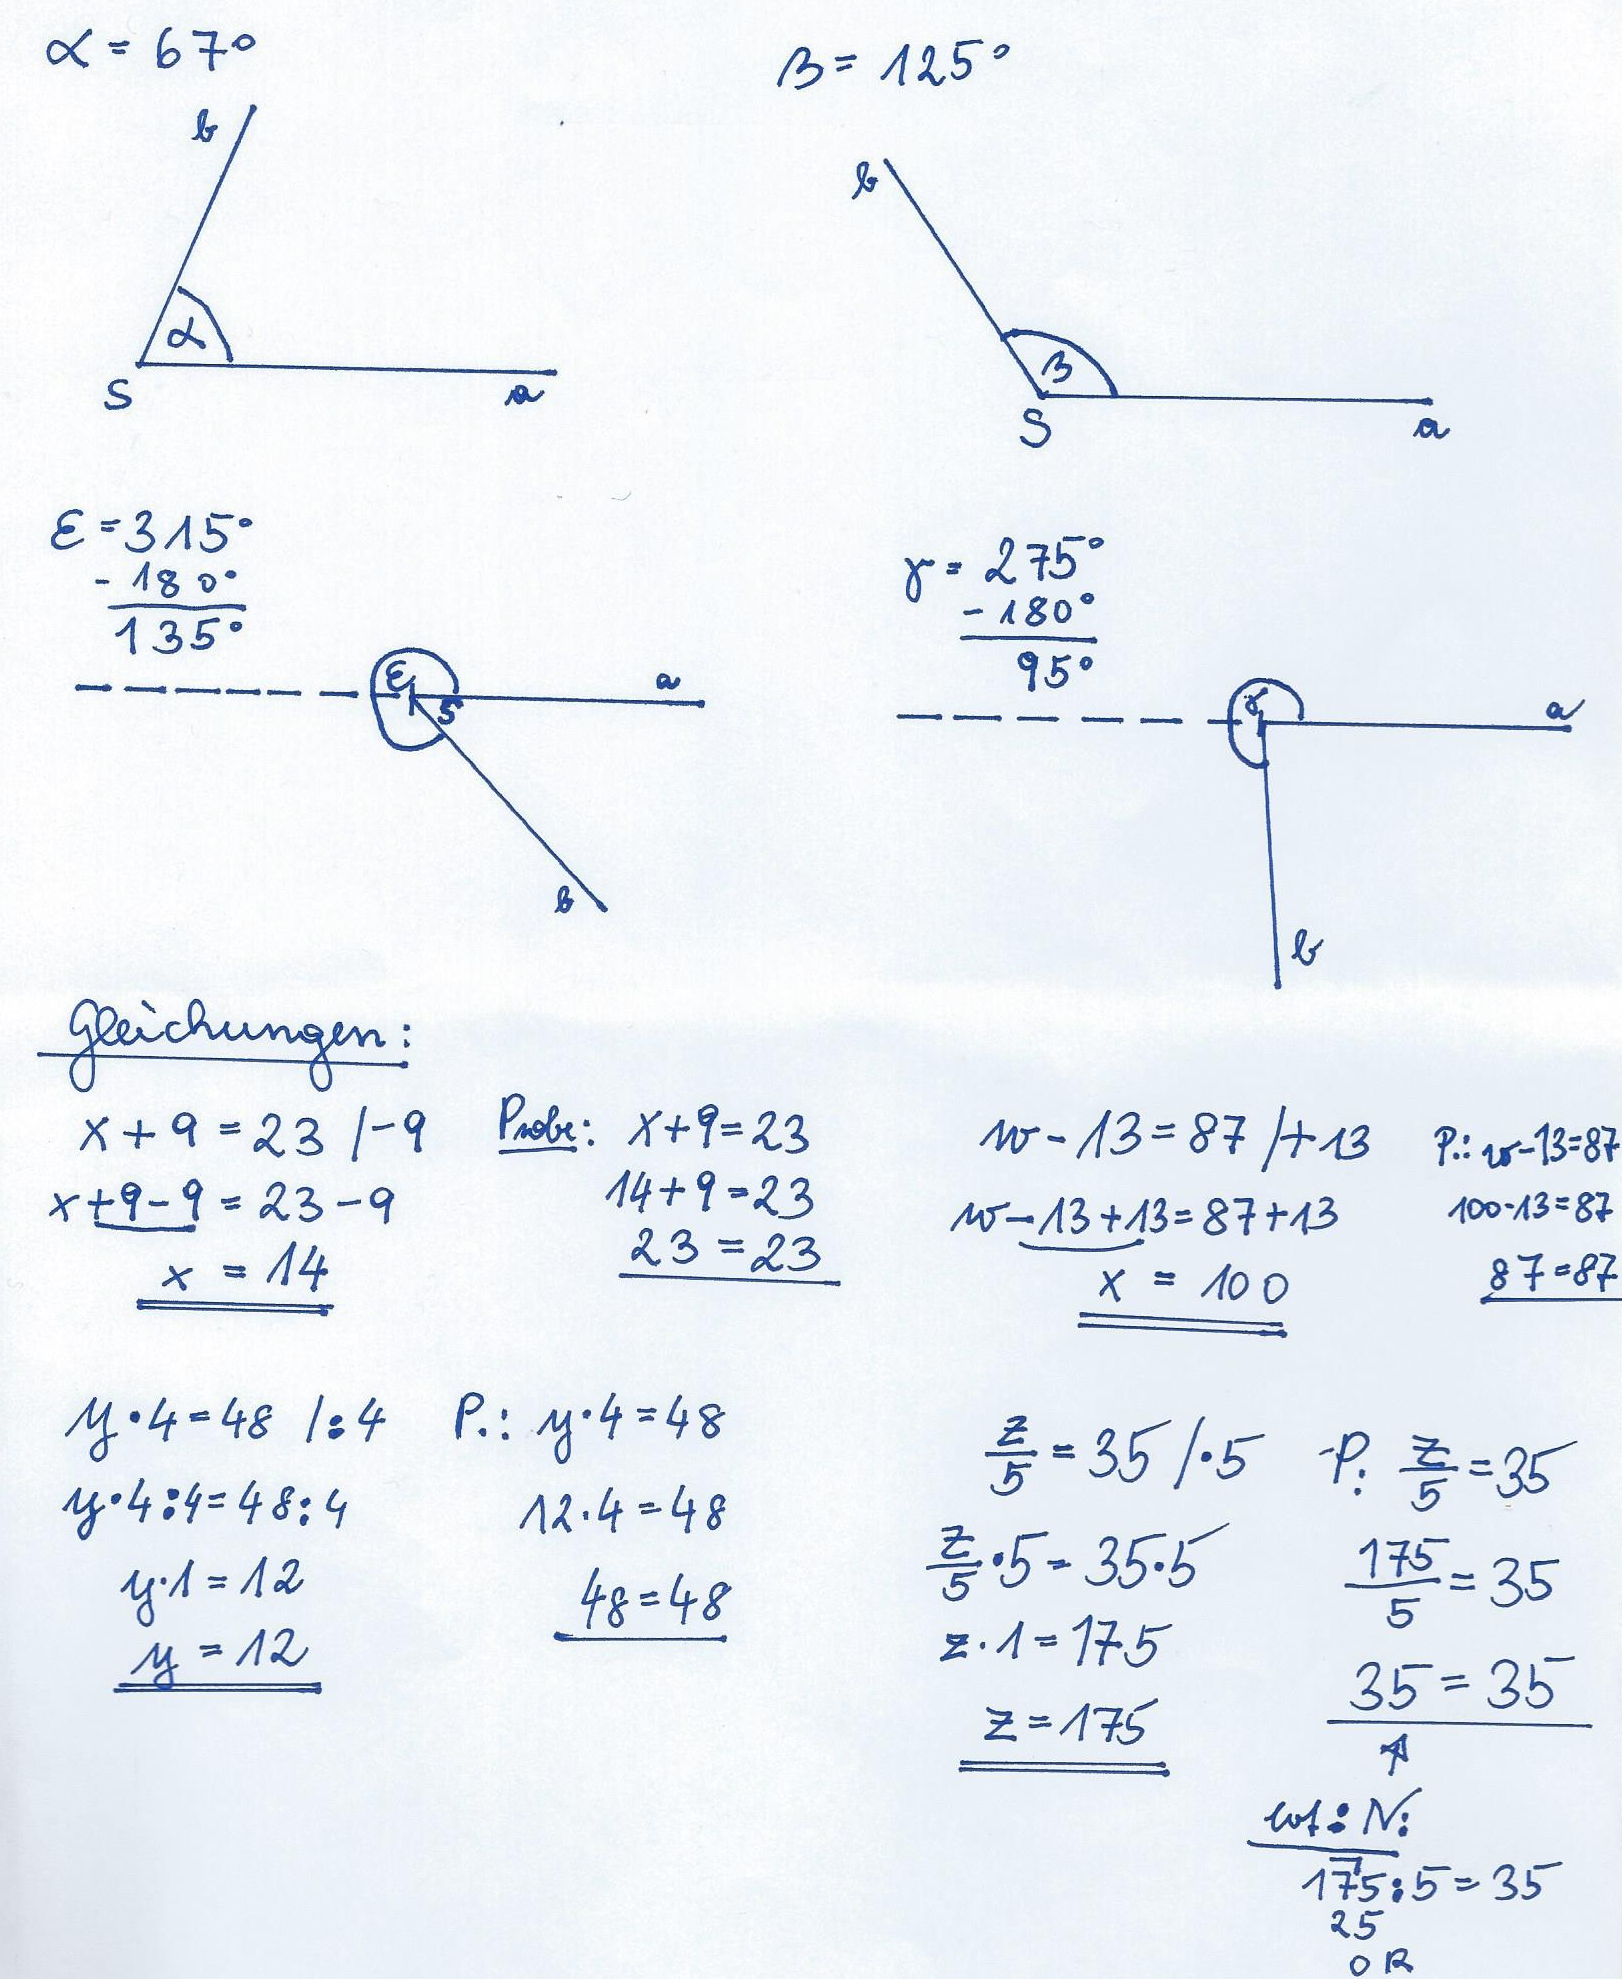 α = 67°
b
α
S
a
β = 125°
b
β
S
a
ε = 315°
- 180°
135°
ε
S
a
b
γ = 275°
- 180°
95°
γ
a
b
Gleichungen:
x + 9 = 23 / -9
x + 9 - 9 = 23 - 9
x = 14
Probe: x + 9 = 23
14 + 9 = 23
23 = 23
w - 13 = 87 / + 13
w - 13 + 13 = 87 + 13
x = 100
P.: w - 13 = 87
100 - 13 = 87
87 = 87
y · 4 = 48 / : 4
y · 4 : 4 = 48 : 4
y · 1 = 12
y = 12
P.: y · 4 = 48
12 · 4 = 48
48 = 48
z/5 = 35 / · 5
z/5 · 5 = 35 · 5
z · 1 = 175
z = 175
P: z/5 = 35
175/5 = 35
35 = 35
N:
175 : 5 = 35
25
0 R